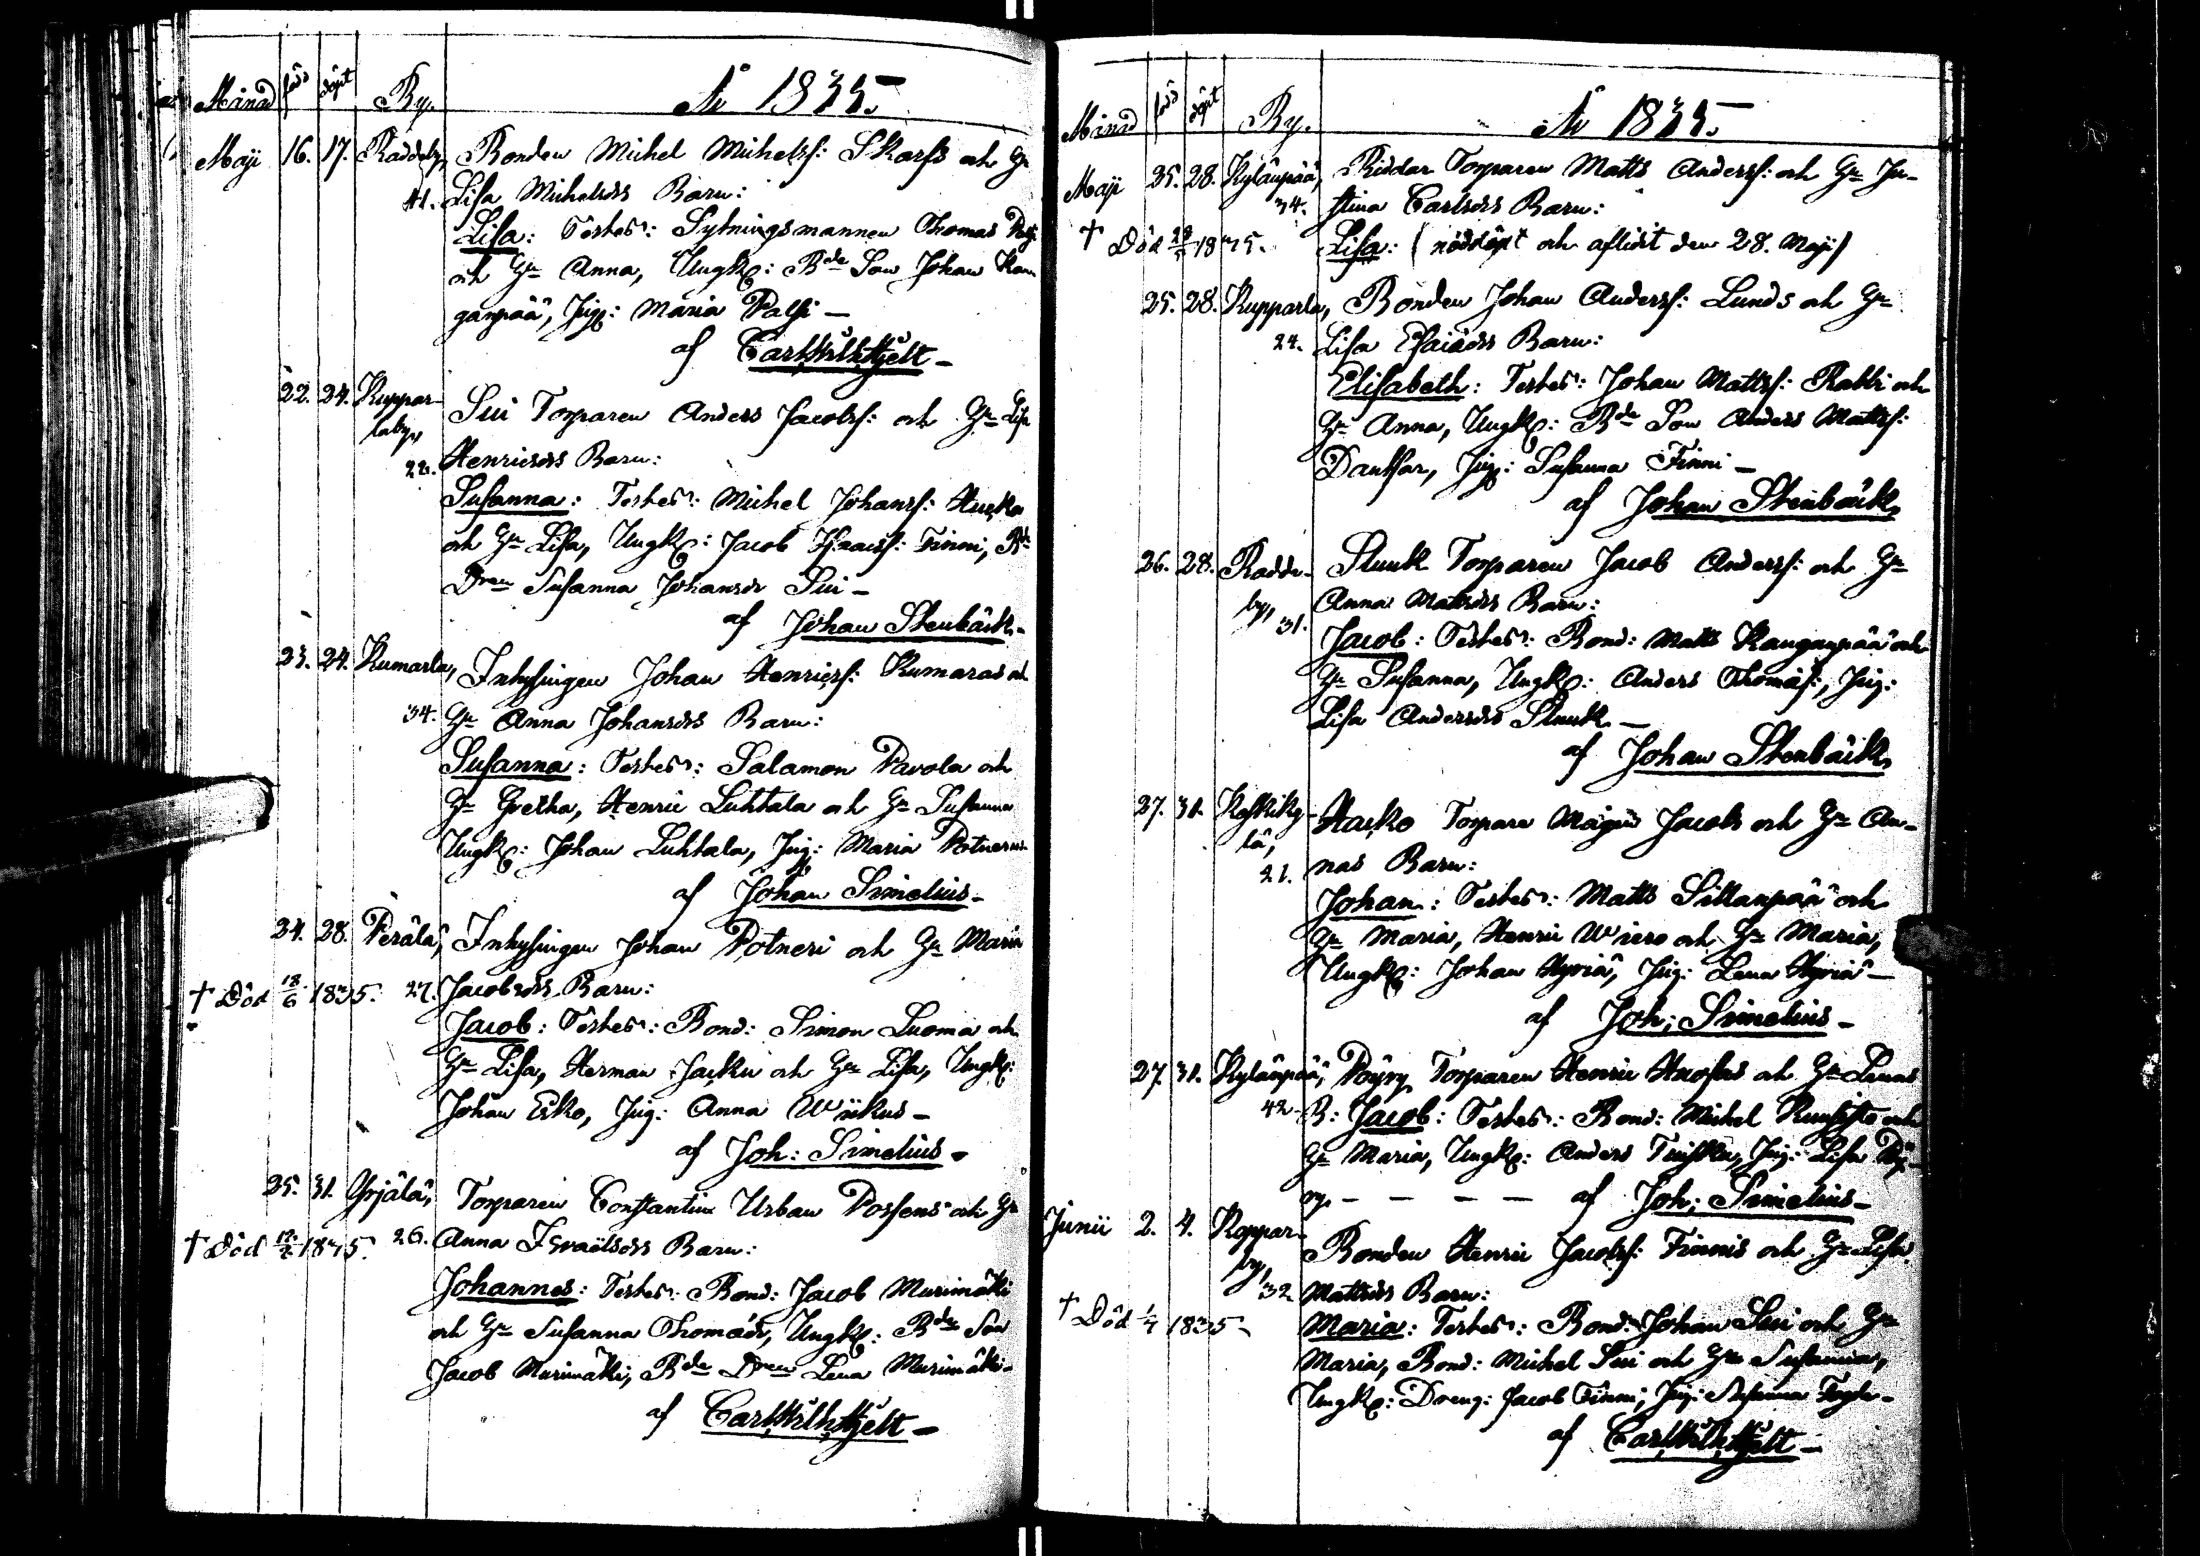 Månad född döpt By. År 1835.
Maji 16. 17. Raddeby, Bonden Michel Michelsf: Skarfs och Hu
41. Lisa Michelsdrs Barn:
Lisa: Testes: Sytningsmannen Thomas
och Hu Anna, Ungk: Bde Son Johan Kan
ganpää, Jug: Maria Palli —
af Carl Wilh Hjelt —
22. 24. Ruppar- Sui Torparen Anders Jacobsf: och Hu Lisa
laby,
22. Henricsdrs Barn:
Susanna: Testes: Michel Johansf: Hucko
och Hu Lisa, Ungk: Jacob Finni, Bde
Dren Susanna Johansdr Sui —
af Johan Stenbäck —
23. 24. Kumarla, Inhysingen Johan Henricsf: Kumaras och
34. Hu Anna Johansdrs Barn:
Susanna: Testes: Salamon Pavola och
Hu Gretha, Henric Luhtala och Hu Susanna
Ungk: Johan Luhtala, Jug: Maria
af Johan Simelius —
24. 28. Perälä, Inhysingen Johan Potneri och Hu Maria
† Död 18/6 1835. 27. Jacobsdrs Barn:
Jacob: Testes: Bond: Simon Luoma och
Hu Lisa, Herman Jacku och Hu Lisa, Ungk:
Johan Esko, Jug: Anna Wiikus —
af Joh: Simelius —
25. 31. Yrjälä, Torparen Constantin Urban Possens och Hu
† Död 1835. 26. Anna Israëlsdrs Barn:
Johannes: Testes: Bond: Jacob Murimäki
och Hu Susanna Thomädr, Ungk: Bde Son
Jacob Murimäki, Bde Dren Lena Murimäki —
af Carl Wilh Hjelt —
Månad född döpt By. År 1835.
Maji 25. 28. Kyläupää, Riddar Torparen Matts Andersf: och Hu Ju-
34. stina Carlsdrs Barn:
† Död 28/5 1835. Lisa: (nöddöpt och aflidit den 28. Maji)
25. 28. Rupparla, Bonden Johan Andersf: Lunds och Hu
24. Lisa Esaiädrs Barn:
Elisabeth: Testes: Johan Mattsf: Rabbi och
Hu Anna, Ungk: Bde Son Anders Mattsf:
Dantsar, Jug: Susanna Finni —
af Johan Stenbäck
26. 28. Radde- Slunk Torparen Jacob Andersf: och Hu
by, 31. Anna Mattsdrs Barn:
Jacob: Testes: Bond: Matts Kanganpää och
Hu Susanna, Ungk: Anders Thomäf:, Jug:
Lisa Andersdrs Slunk —
af Johan Stenbäck
27. 31. Koskiky- Hacko Torpare Mågen Jacobs och Hu An-
lä,
21. nas Barn:
Johan: Testes: Matts Sillanpää och
Hu Maria, Henric Wiero och Hu Maria,
Ungk: Johan Hyriä, Jug: Lena Hyriä —
af Joh: Simelius —
27. 31. Kyläupää, Pöyry Torparen Henric och Hu Lenas
42. B: Jacob: Testes: Bond: Michel och
Hu Maria, Ungk: Anders Jug: Lisa Pöy-
ry — — — — af Joh: Simelius —
Junii 2. 4. Roppar- Bonden Henric Jacobsf: Finnis och Hu Lisa
by, 32. Mattsdrs Barn:
† Död 1/7 1835. Maria: Testes: Bond: Johan Sui och Hu
Maria, Bond: Michel Sui och Hu Susanna,
Ungk: Dreng: Jacob Finni, Jug: Susanna
af Carl Wilh Hjelt —